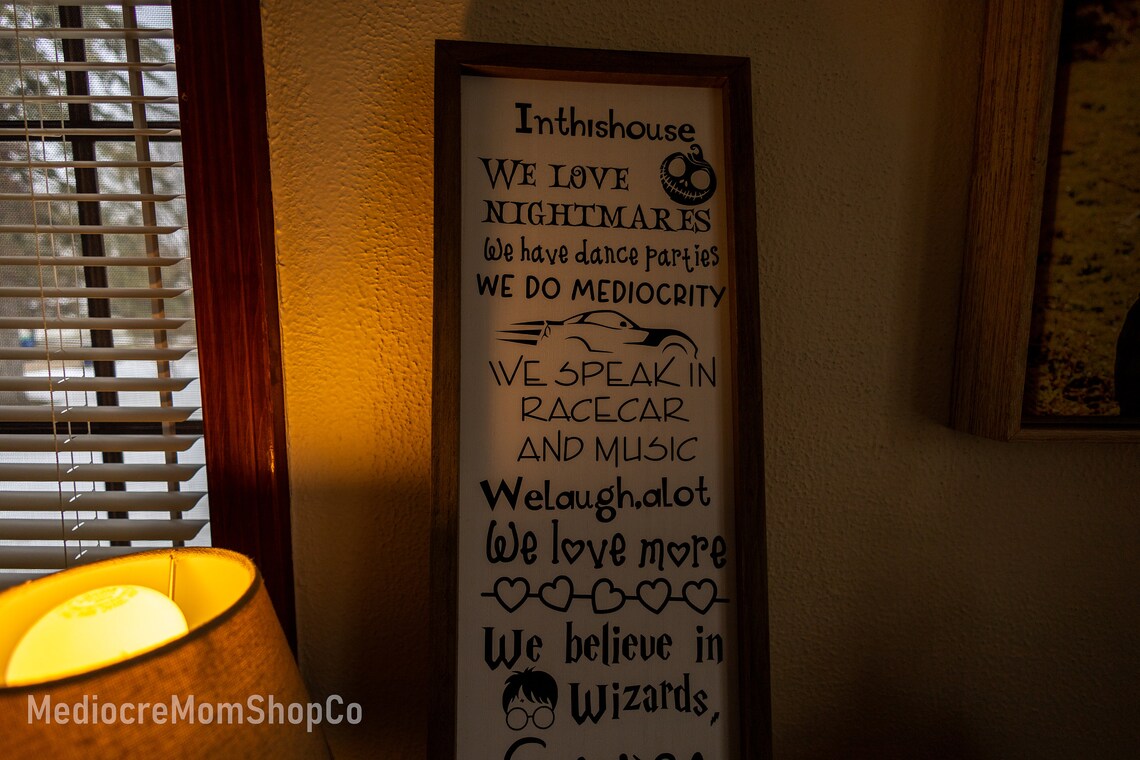 Inthishouse
WE LOVE
NIGHTMARES
We have dance parties
WE DO MEDIOCRITY
WE SPEAK IN
RACECAR
AND MUSIC
Welaugh,alot
We love more
We believe in
Wizards,
MediocreMomShopCo